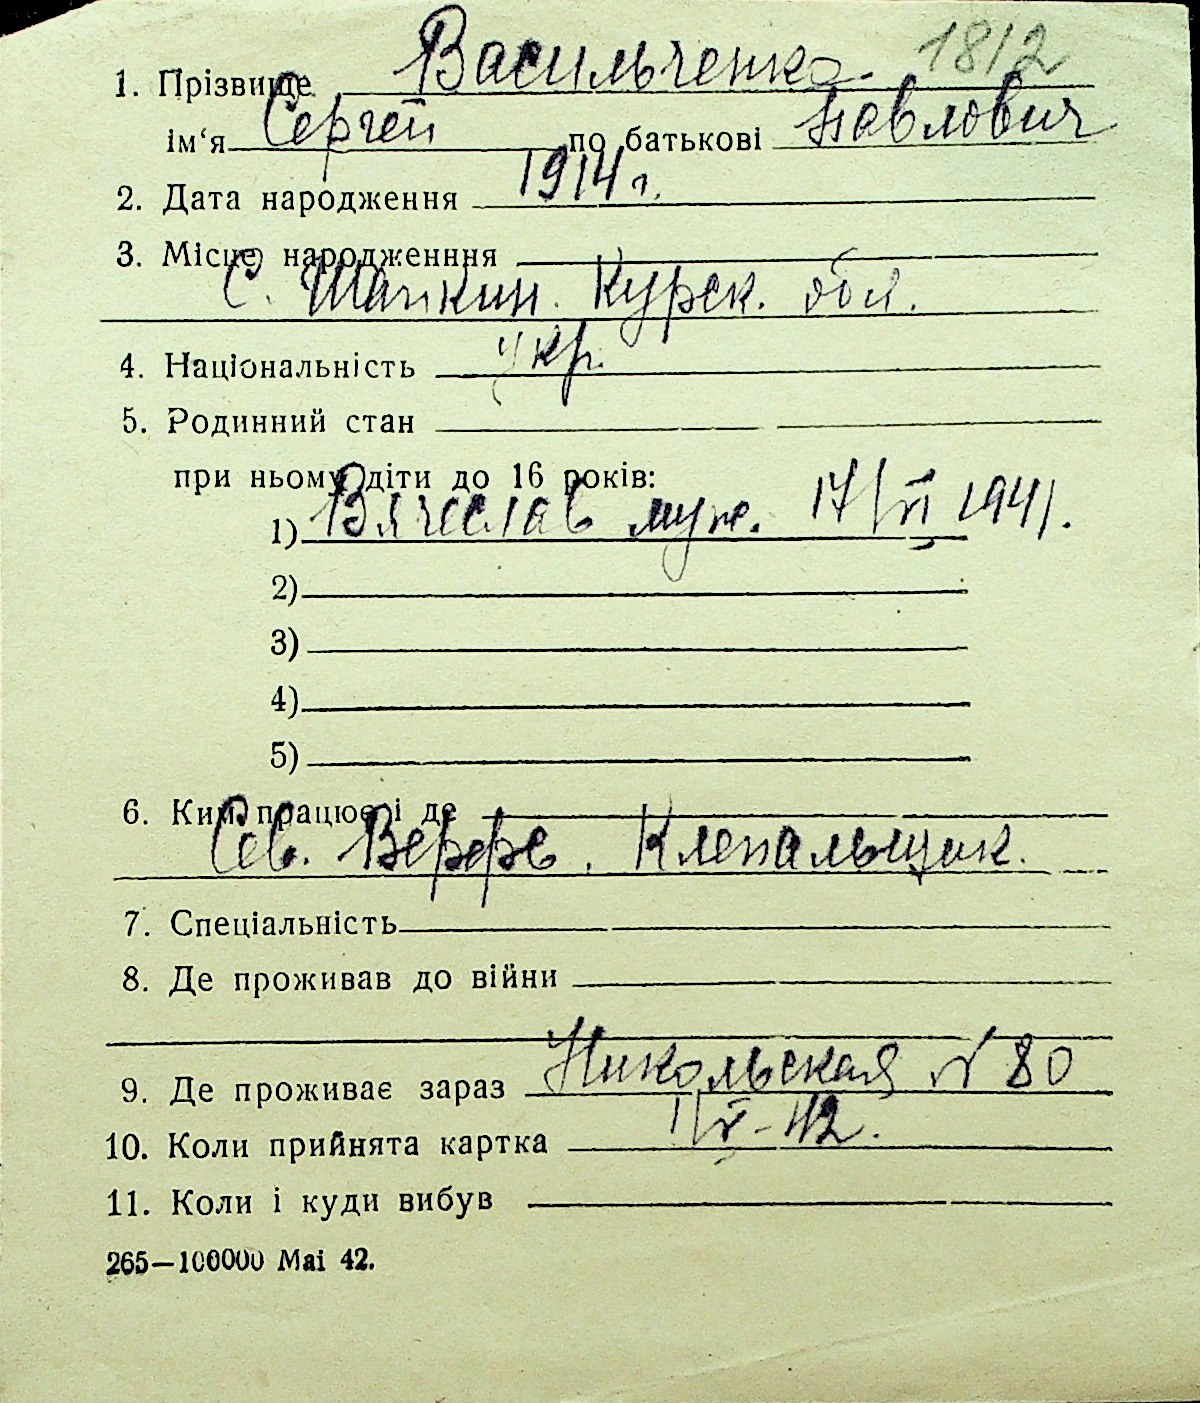 1812
1. Прізвище Васильченко
ім‘я Сергей по батькові Павлович
2. Дата народження 1914 г.
3. Місце народженння
С. Шапкин. Курск. обл.
4. Національність укр.
5. Родинний стан
при ньому діти до 16 років:
1) Вячеслав муж. 17/VI 1941.
2)
3)
4)
5)
6. Ким працює і де
Сев. Верфь. Клепальщик.
7. Спеціальність
8. Де проживав до війни
9. Де проживає зараз Никольская № 80
10. Коли прийнята картка 1/V-42.
11. Коли і куди вибув
265—100000 Mai 42.